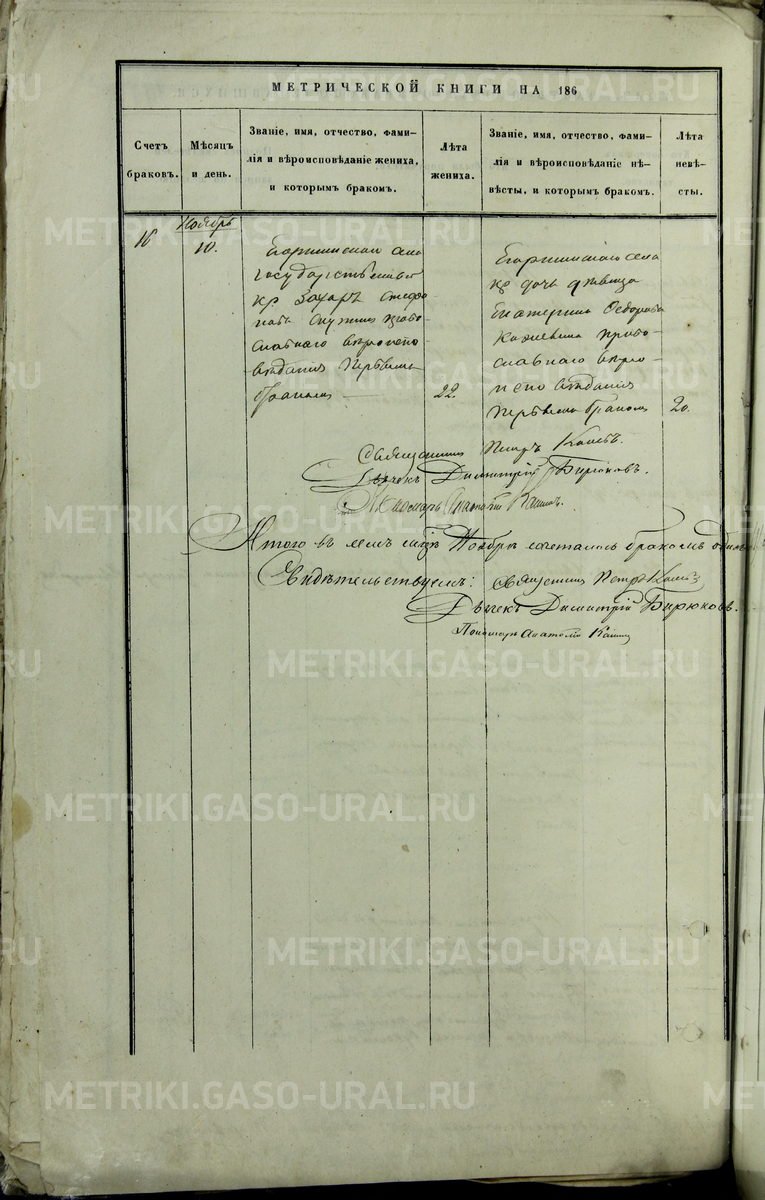 МЕТРИЧЕСКОЙ КНИГИ НА 186
Счетъ браковъ.
Мѣсяцъ и день.
Званіе, имя, отчество, фами-
лія и вѣроисповѣданіе жениха,
и которымъ бракомъ.
Лѣта жениха.
Званіе, имя, отчество, фами-
лія и вѣроисповѣданіе не-
вѣсты, и которымъ бракомъ.
Лѣта невѣ-
сты.
Ноябрь
16
10.
села
государственный
кр Захаръ Стефа
новъ право
славнаго вѣроиспо
вѣданія первымъ
бракомъ
22.
села
кр дочь девица
Екатерина Ѳедорова
право
славнаго вѣро
исповѣданія
первымъ бракомъ
20.
Священникъ Петръ
Дьячекъ Димитрій Бирюковъ.
Пономарь Анатолій
Итого въ семъ м-цѣ Ноябрѣ сочеталось бракомъ
Свидѣтельствуемъ: Священникъ Петръ
Дьячекъ Димитрій Бирюковъ.
Пономарь Анатолій
METRIKI.GASO-URAL.RU